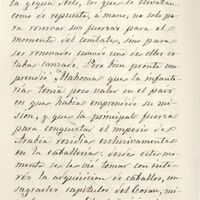 la yegua Seis, los que se llevaban
como de repuesto, a mano, no solo pa
ra reservar sus fuerzas para el
momento del combate, sino para
ser renovados cuando una de ellas
estaba cansada. Pero bien pronto com
prendió Mahoma que la infante
ria tenia poco valor en el pais
en que habia emprendido su mi
sion, y que la principal fuerza
para conquistar el imperio de
Arabia residia esclusivamente
en la caballeria; desde este mo
mento se le vió tomar con inte
rés la adquisicion de caballos, con
sagrarles capitulos del Coran, mi